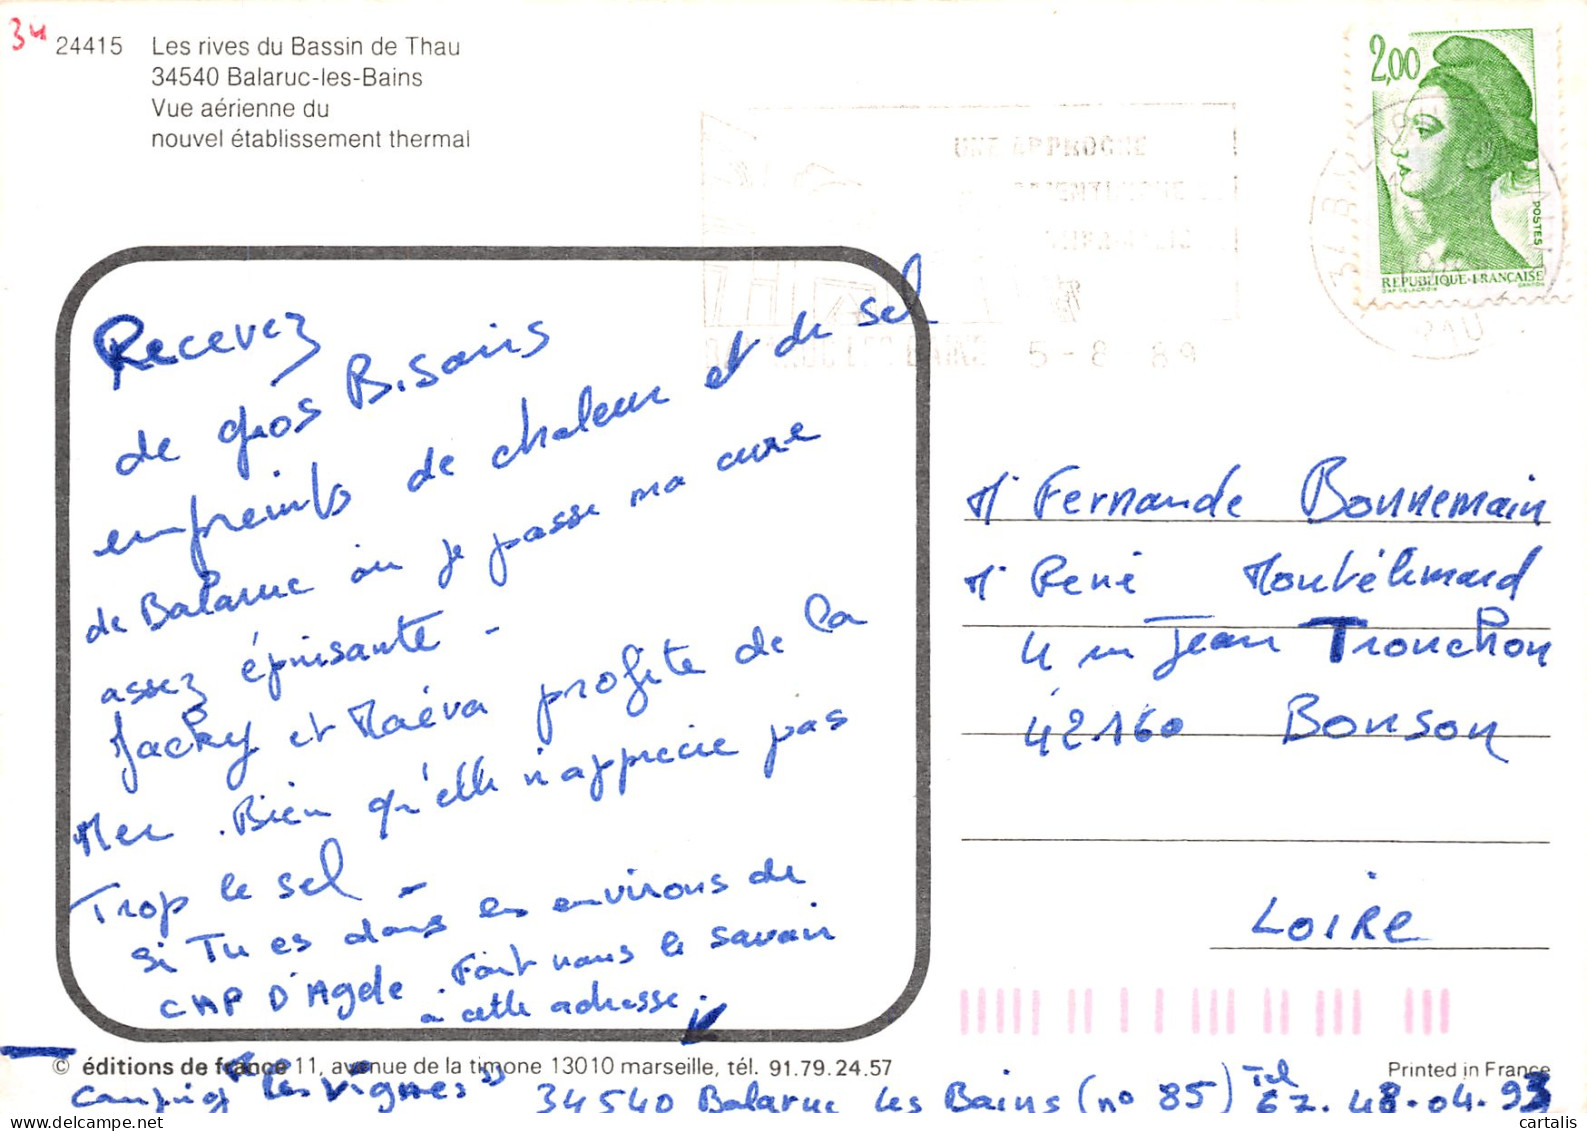 34
24415 Les rives du Bassin de Thau
34540 Balaruc-les-Bains
Vue aérienne du
nouvel établissement thermal
2,00
POSTES
REPUBLIQUE·FRANÇAISE
UNE APPROCHE
5-8 89
Recevez
de gros Bisous
empreints de chaleur et de sel
de Balaruc où je passe ma cure
assez épuisante -
Jacky et Maéva profite de la
Mer. Bien qu'elle n'apprécie pas
Trop le sel -
Si Tu es dans les environs de
CAP D'Agde. Fait nous le savoir
à cette adresse:
Fernande Bonnemain
René Montélimard
4 Jean Trouchon
42160 Bonson
LOIRE
© éditions de france 11, avenue de la timone 13010 marseille, tél. 91.79.24.57
Printed in France
Camping "Les Vignes" 34540 Balaruc les Bains (no 85) Tel 67.48.04.93
cartalis